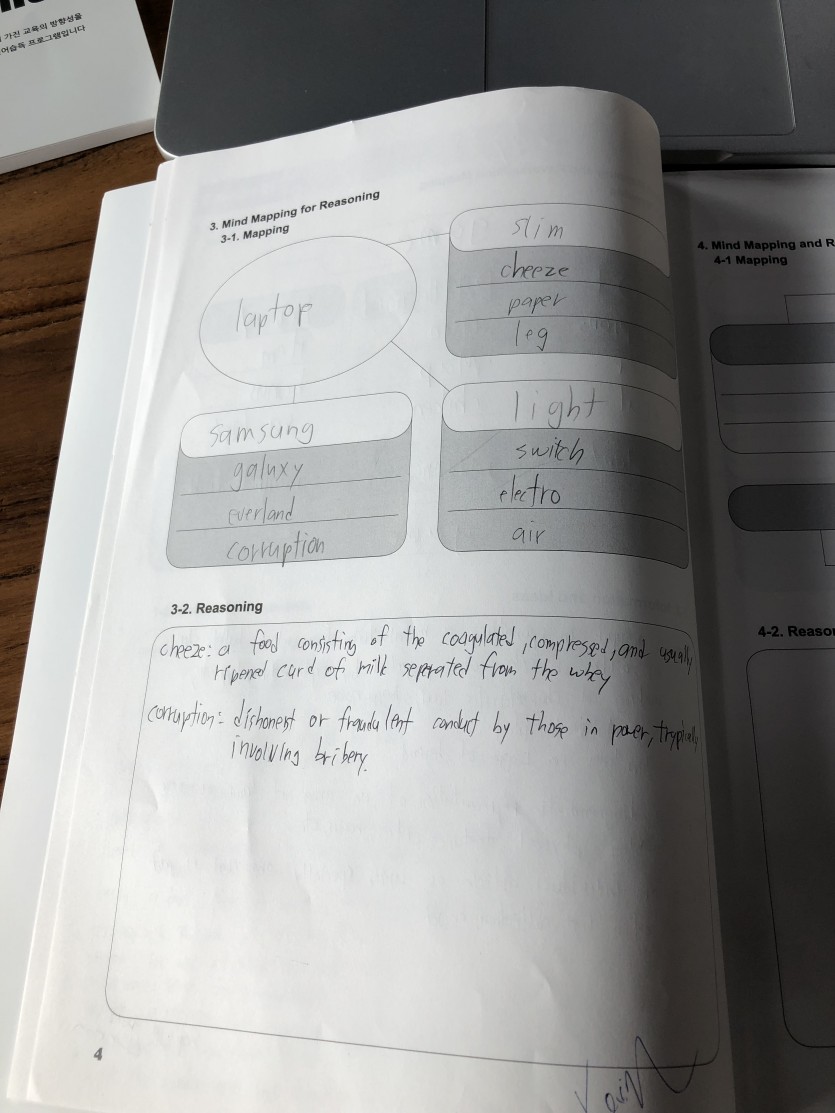 가진 교육의 방향성을
어습득 프로그램입니다
3. Mind Mapping for Reasoning
3-1. Mapping
laptop
slim
cheeze
paper
leg
samsung
galuxy
everland
corruption
light
switch
electro
air
3-2. Reasoning
cheeze: a food consisting of the coagulated, compressed, and usually
ripened curd of milk seperated from the whey
corruption: dishonest or fraudulent conduct by those in power, trypically
involving bribery.
4
4. Mind Mapping and R
4-1 Mapping
4-2. Reason